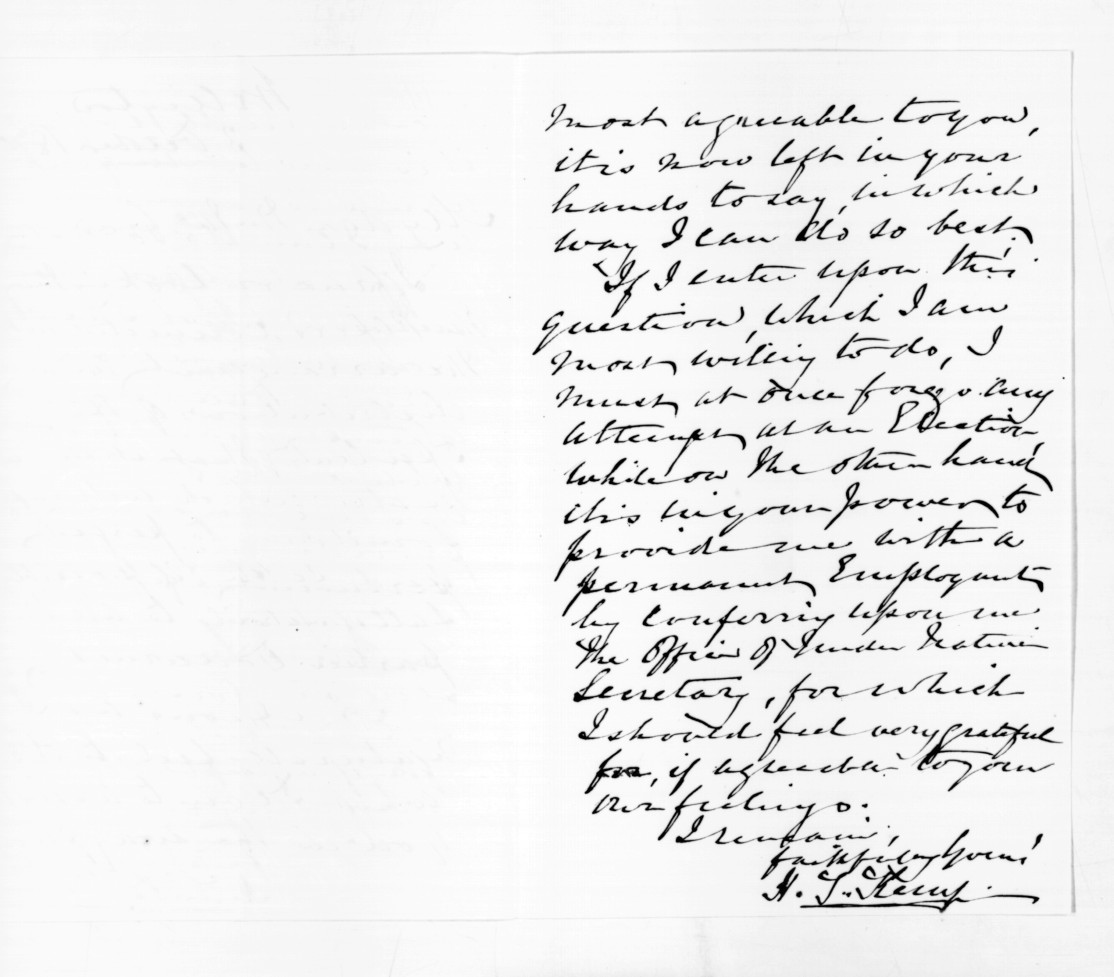 most agreeable to you,
it is now left in your
hands to say, in which
way I can do so best.
If I enter upon this
question, which I am
most willing to do, I
must at once forego any
attempt at an Election,
while on the other hand
it is in your power to
provide me with a
permanent Employment
by conferring upon me
the Office of Under Native
Secretary, for which
I should feel very grateful
for, if agreeable to your
own feelings.
I remain,
faithfully Yours
H. T. Kemp.